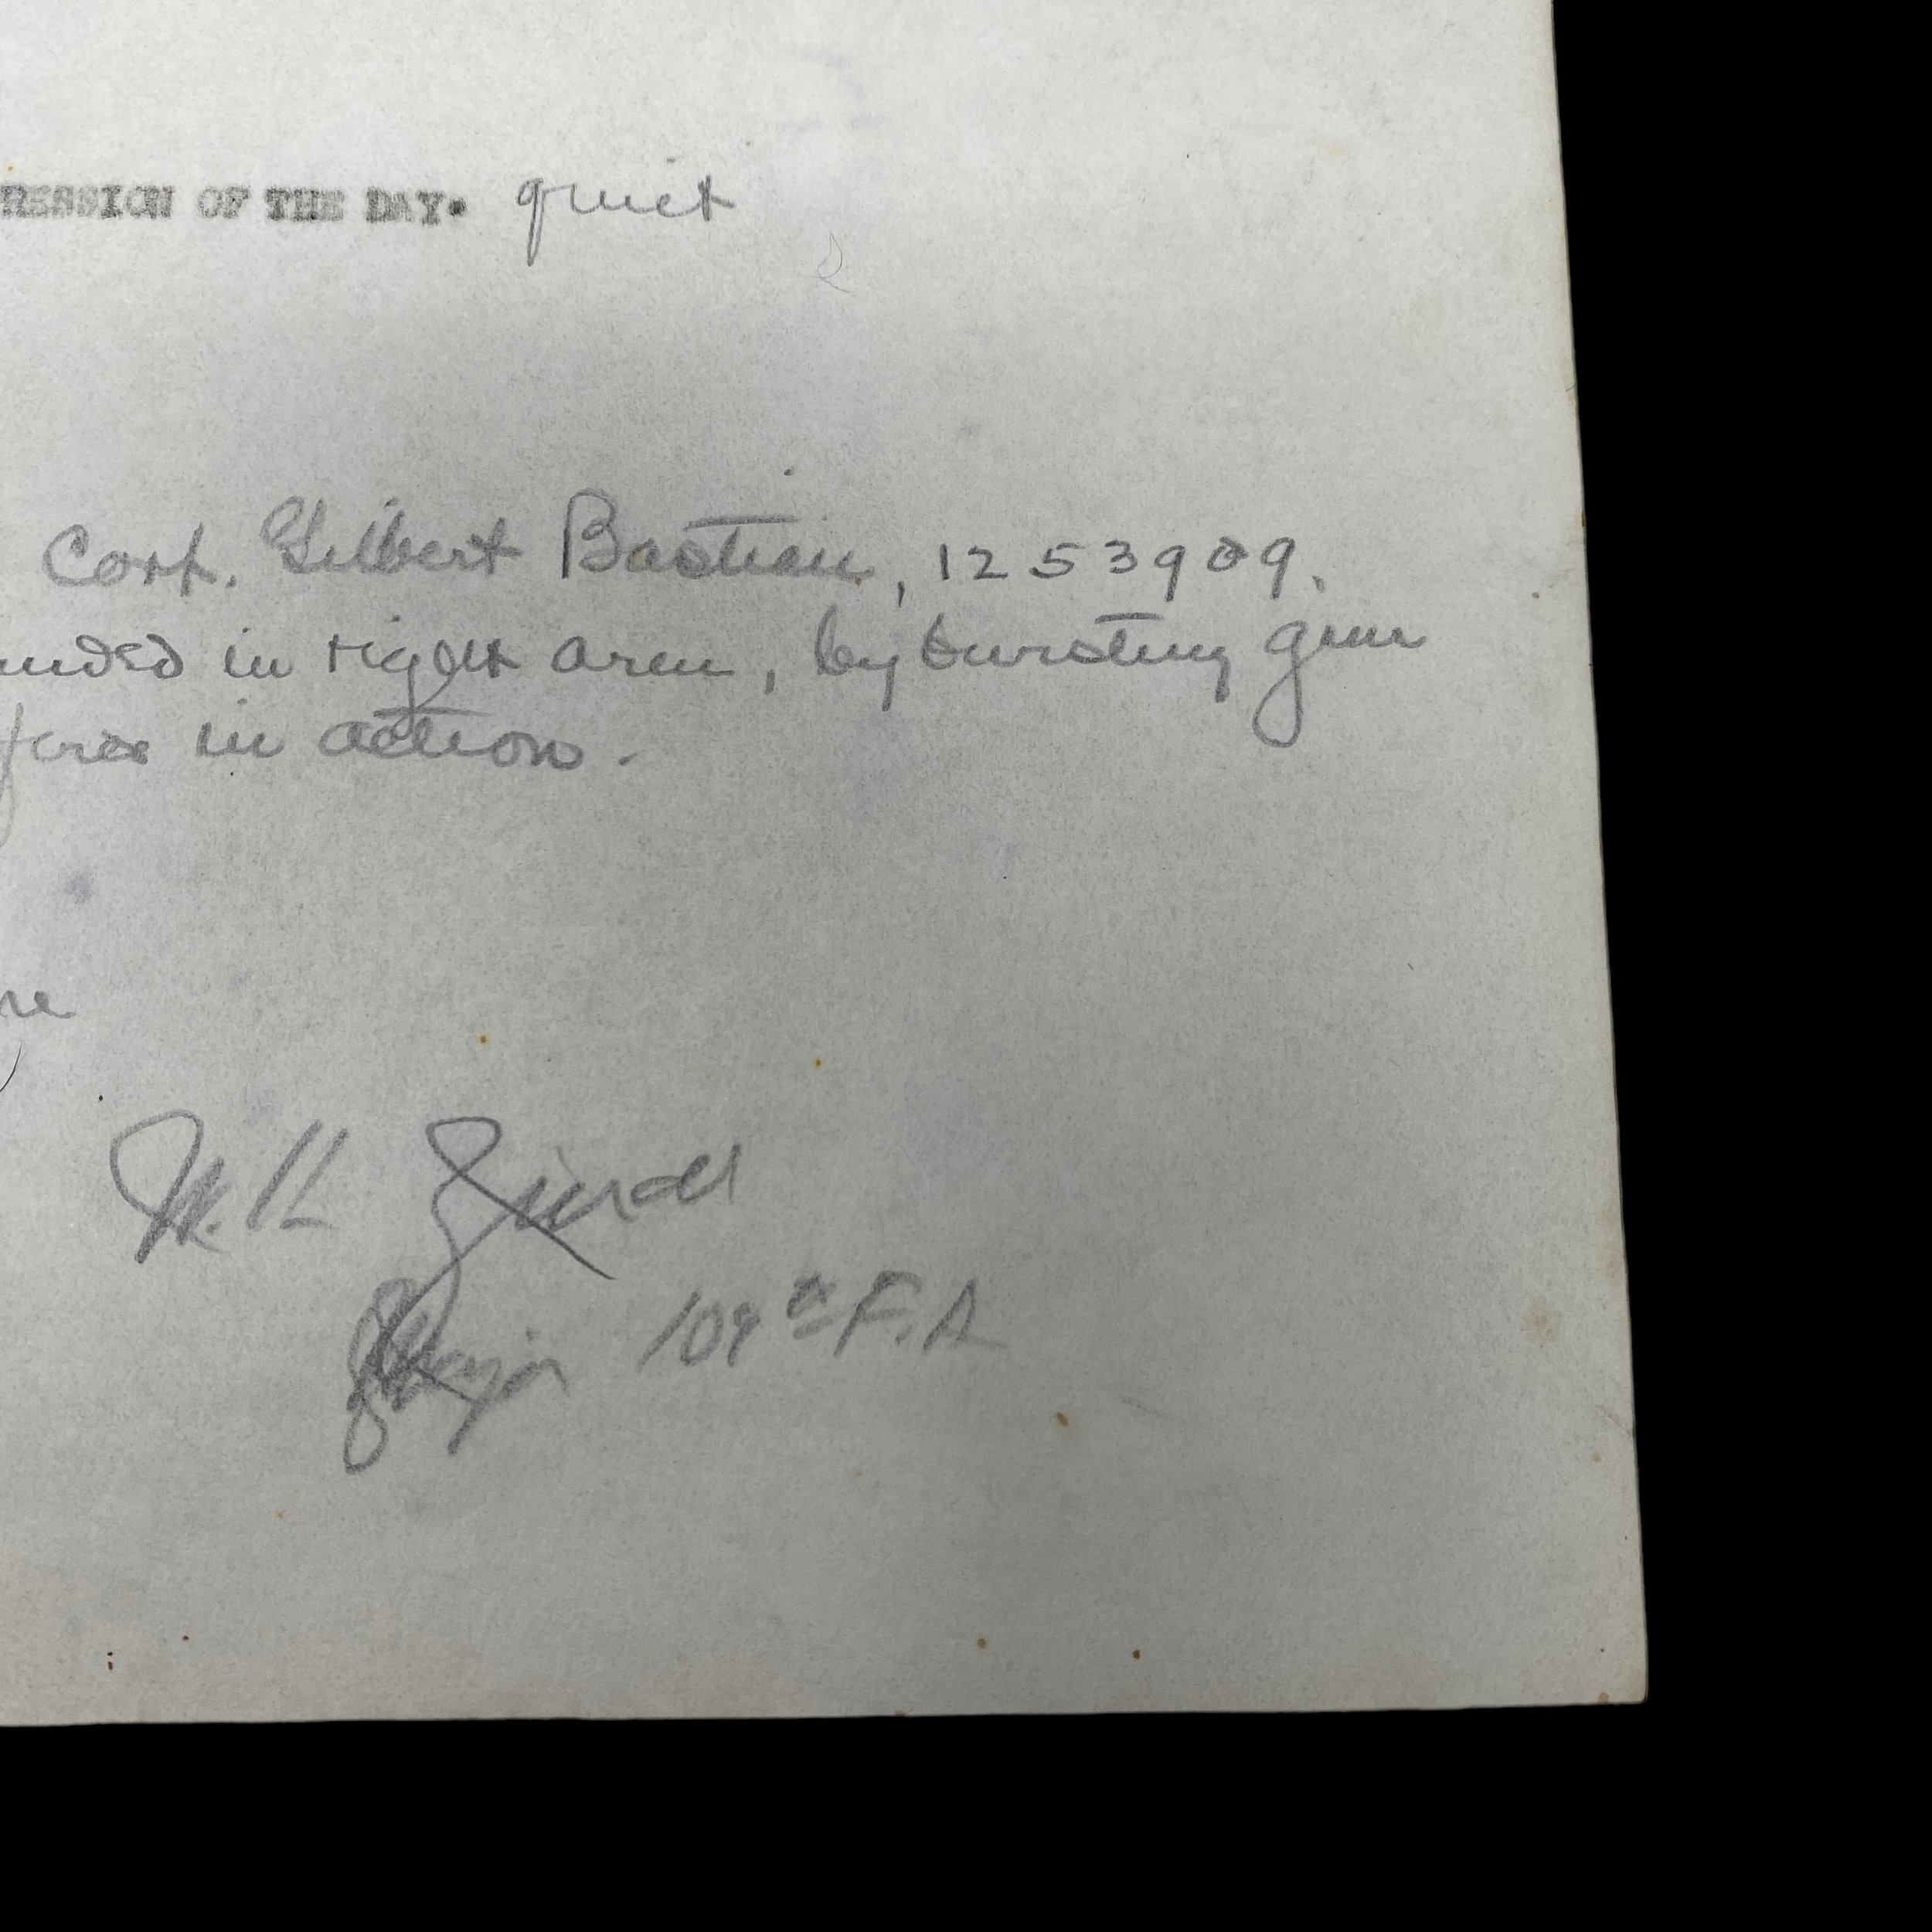 RESSION OF THE DAY. quiet
Corp. Gilbert Bastian, 1253909.
unded in right arm, by bursting gun
in action.
re
Major 109th F.A